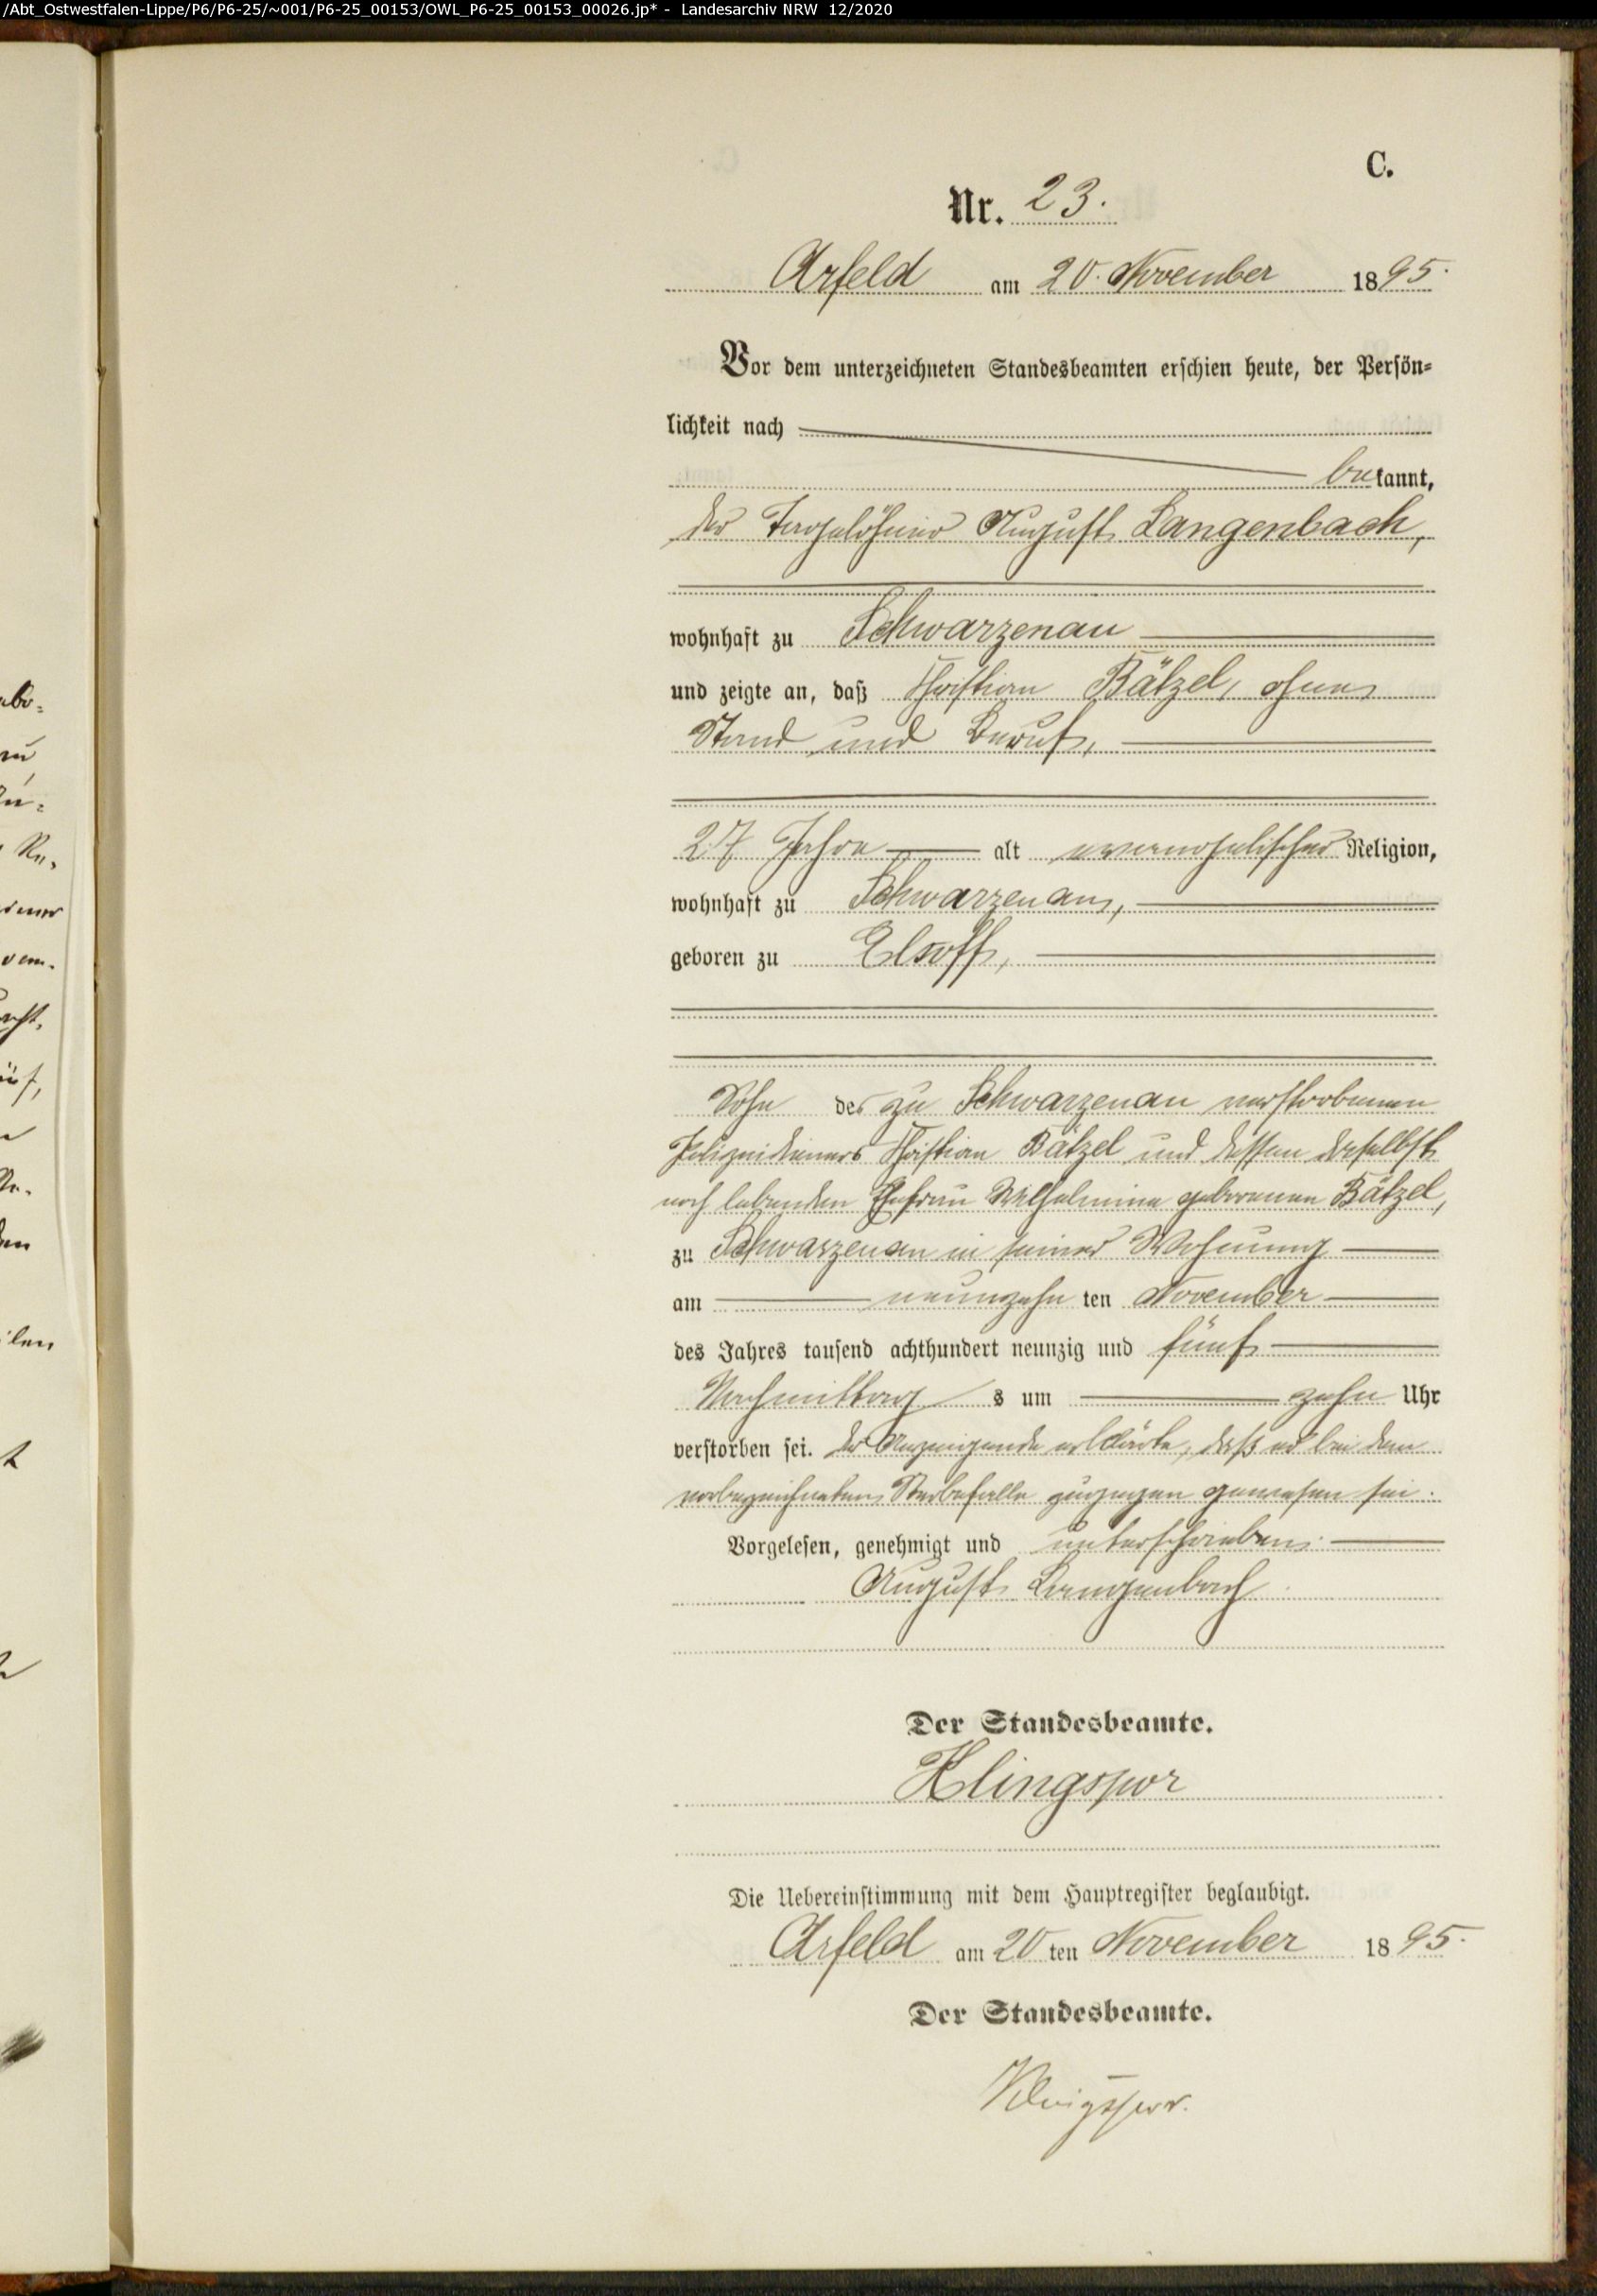 /Abt_Ostwestfalen-Lippe/P6/P6-25/~001/P6-25_00153/OWL_P6-25_00153_00026.jp* - Landesarchiv NRW 12/2020
C.
Nr. 23.
Arfeld am 20. November 1895.
Vor dem unterzeichneten Standesbeamten erschien heute, der Persön-
lichkeit nach
bekannt,
der Tagelöhner August Langenbach,
wohnhaft zu Schwarzenau
und zeigte an, daß Christian Bätzel, ohne
Stand und Beruf,
27 Jahre alt evangelischer Religion,
wohnhaft zu Schwarzenau,
geboren zu Elsoff,
Sohn des zu Schwarzenau verstorbenen
Polizeidieners Christian Bätzel und dessen daselbst
noch lebenden Ehefrau Wilhelmine geborenen Bätzel,
zu Schwarzenau in seiner Wohnung
am neunzehn ten November
des Jahres tausend achthundert neunzig und fünf
Nachmittag s um zehn Uhr
verstorben sei. Der Anzeigende erklärte, daß er bei dem
vorbezeichneten Sterbefalle zugegen gewesen sei.
Vorgelesen, genehmigt und unterschrieben.
August Langenbach
Der Standesbeamte.
Klingspor
Die Uebereinstimmung mit dem Hauptregister beglaubigt.
Arfeld am 20 ten November 1895.
Der Standesbeamte.
Klingspor.